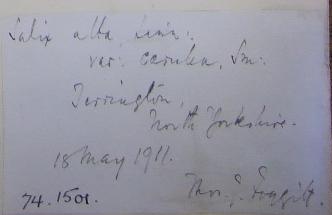 Salix alba, Linn:
var: cærulea, Sm:
Terrington,
North Yorkshire.
18 May 1911.
Thos. J. Foggitt.
74.1501.